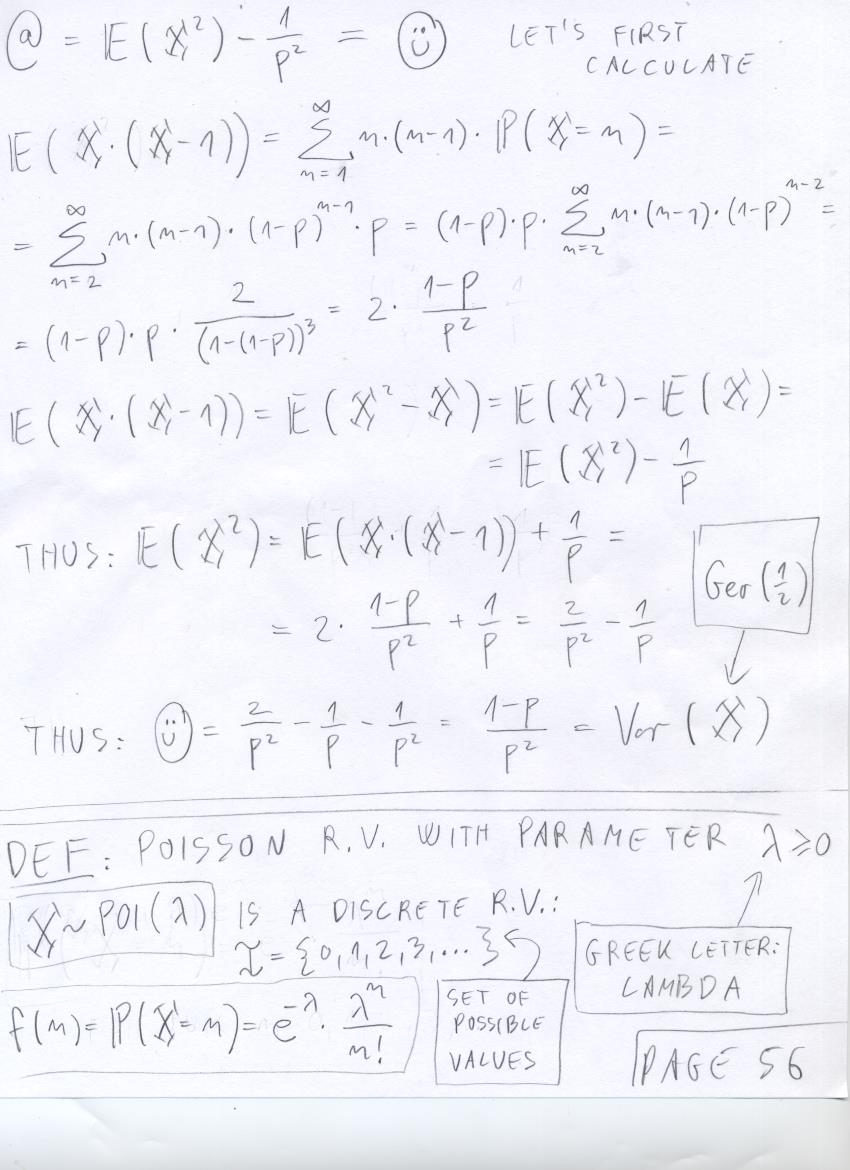 ⓐ = 𝔼(X²) - 1/p² = ☺ LET'S FIRST CALCULATE
𝔼(X·(X-1)) = ∑_{n=1}^{∞} n·(n-1)·ℙ(X=n) =
= ∑_{n=2}^{∞} n·(n-1)·(1-p)^{n-1}·p = (1-p)·p·∑_{n=2}^{∞} n·(n-1)·(1-p)^{n-2} =
= (1-p)·p·2/(1-(1-p))³ = 2·(1-p)/p²
𝔼(X·(X-1)) = 𝔼(X²-X) = 𝔼(X²) - 𝔼(X) =
= 𝔼(X²) - 1/p
THUS: 𝔼(X²) = 𝔼(X·(X-1)) + 1/p =
= 2·(1-p)/p² + 1/p = 2/p² - 1/p
Geo(1/2)
THUS: ☺ = 2/p² - 1/p - 1/p² = (1-p)/p² = Var(X)
DEF: POISSON R.V. WITH PARAMETER λ≥0
X~POI(λ) IS A DISCRETE R.V.:
I = {0,1,2,3,...}
GREEK LETTER:
LAMBDA
f(n) = ℙ(X=n) = e^{-λ}·λⁿ/n!
SET OF
POSSIBLE
VALUES
PAGE 56